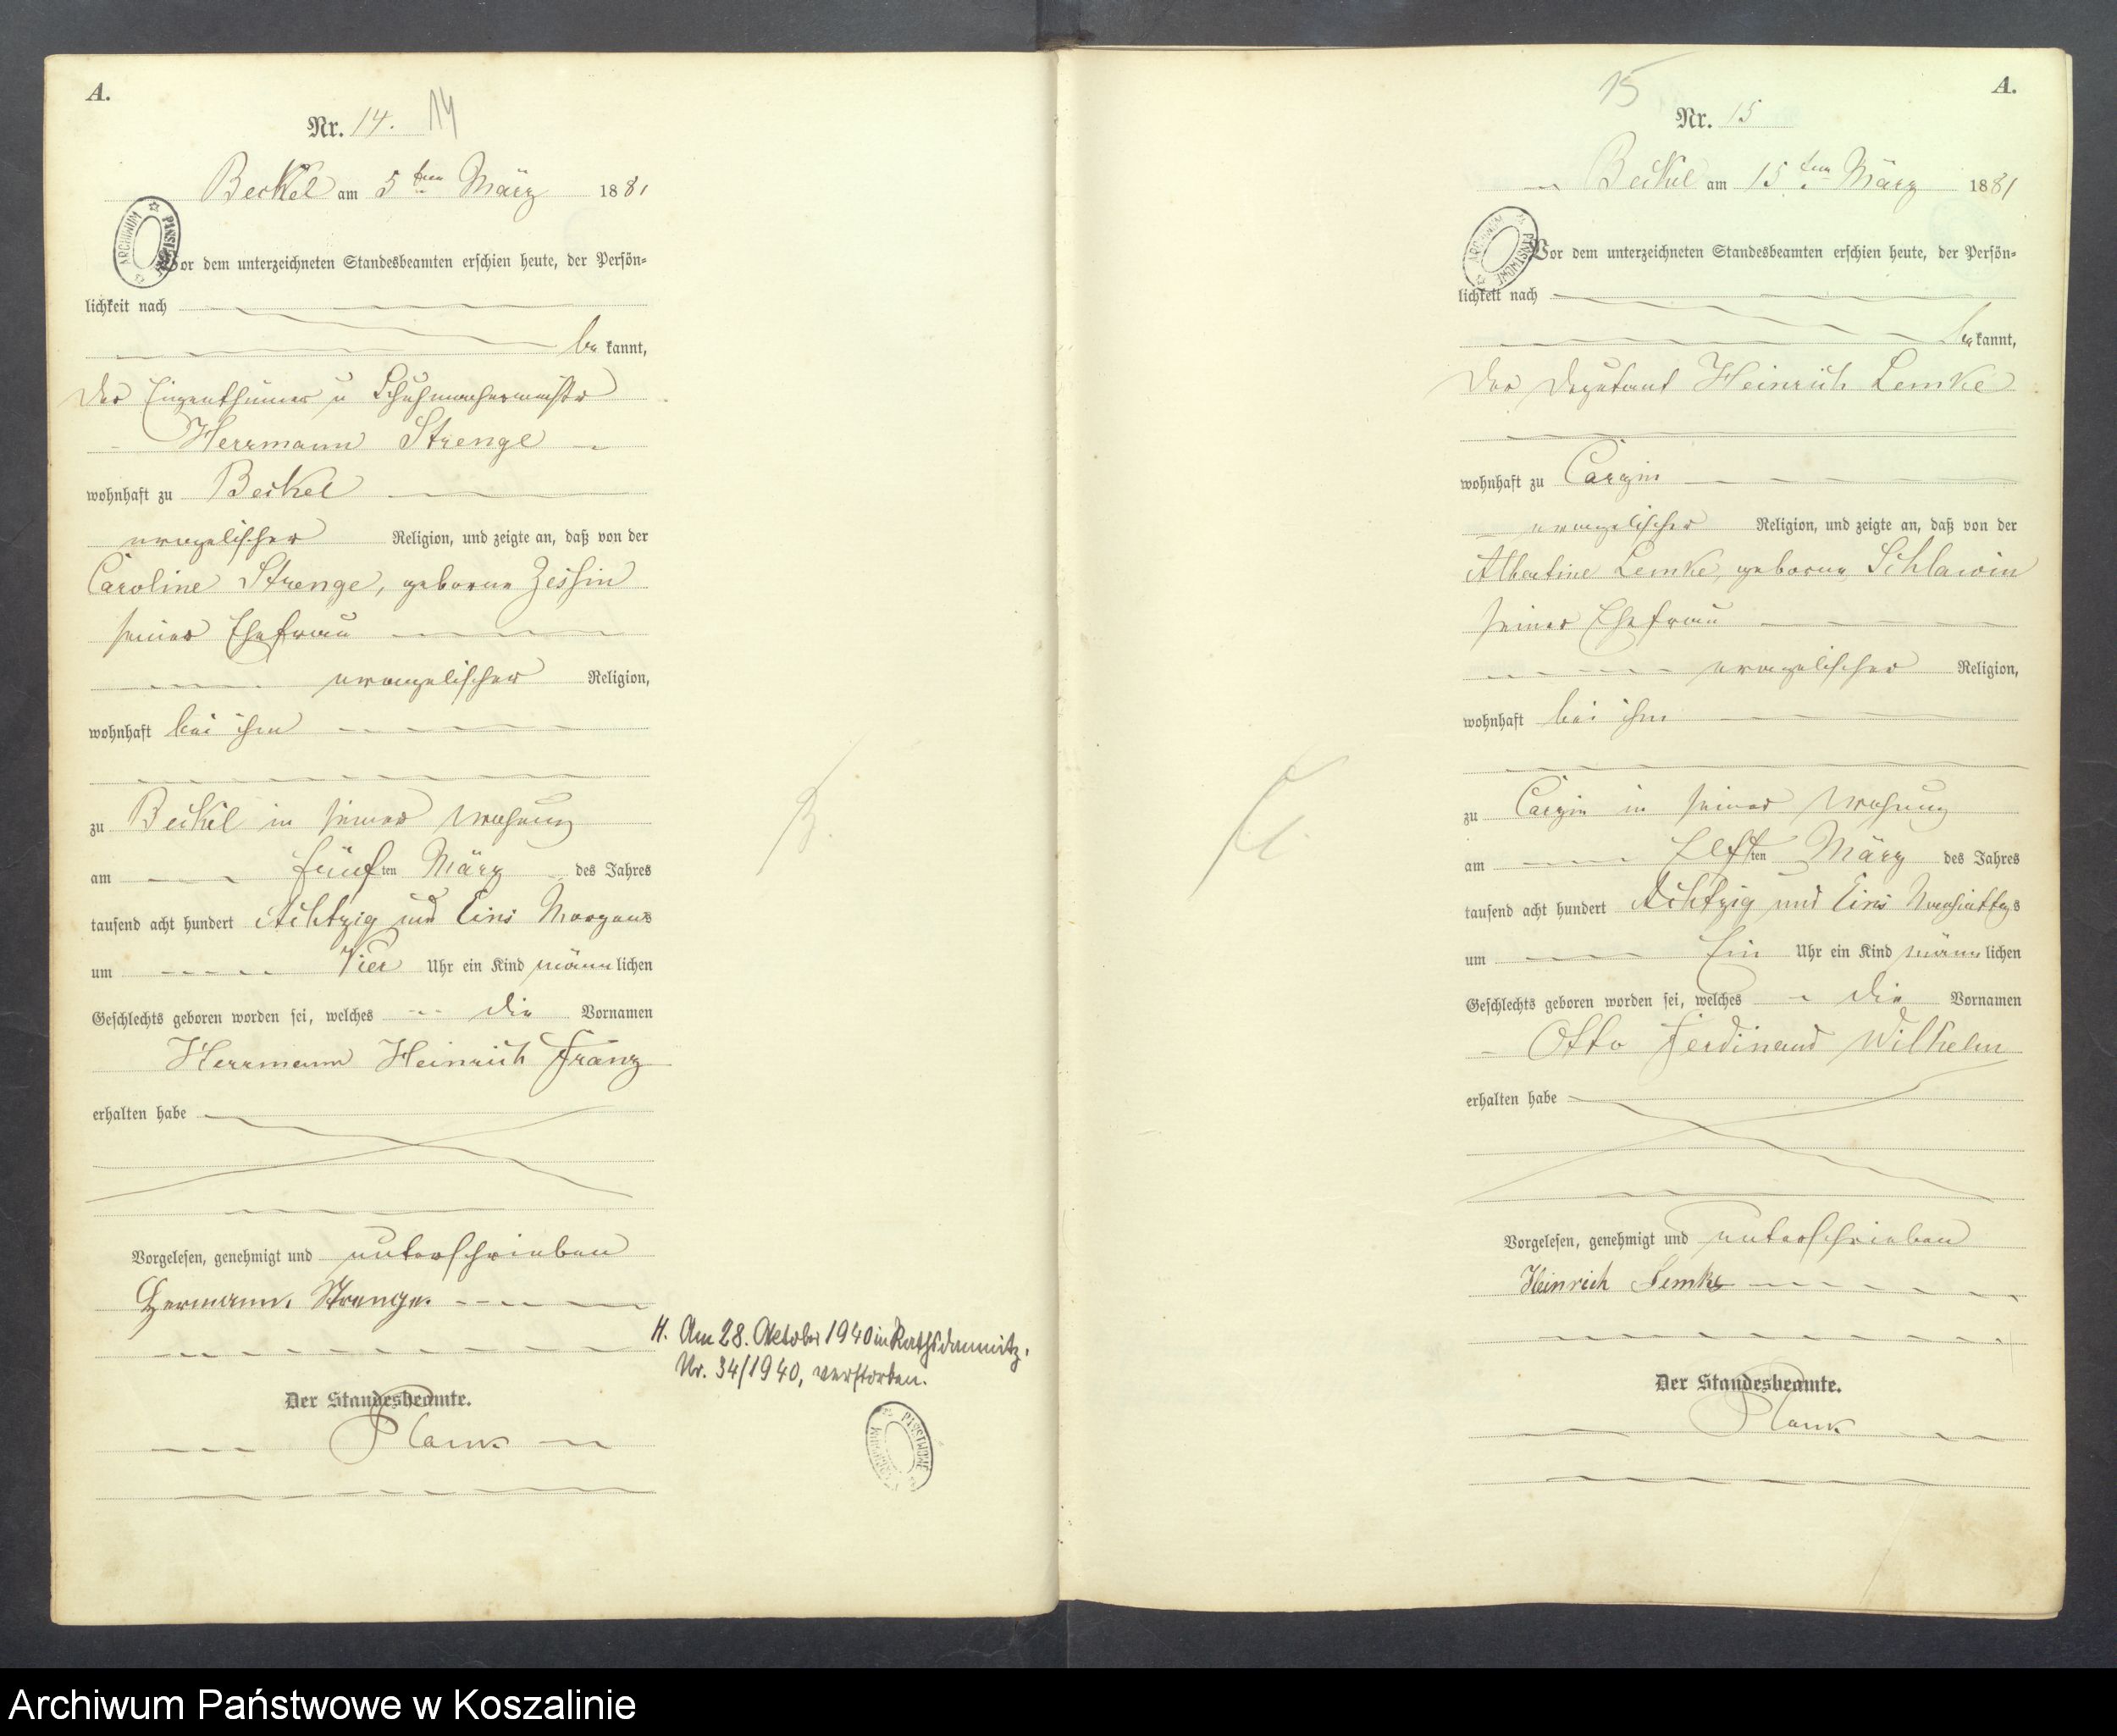 A.
Nr. 14. 14
Beckel am 5ten März 1881
ARCHIWUM PAŃSTWOWE
Vor dem unterzeichneten Standesbeamten erschien heute, der Persön-
lichkeit nach
bekannt,
der Eigenthümer u Schuhmachermeister
Herrmann Strenge
wohnhaft zu Beckel
evangelischer Religion, und zeigte an, daß von der
Caroline Strenge, geborne Zessin
seiner Ehefrau
evangelischer Religion,
wohnhaft bei ihm
zu Beckel in seiner Wohnung
am fünften März des Jahres
tausend acht hundert Achtzig und Eins Morgens
um Vier Uhr ein Kind männlichen
Geschlechts geboren worden sei, welches die Vornamen
Herrmann Heinrich Franz
erhalten habe
Vorgelesen, genehmigt und unterschrieben
Hermann Strenge.
H. Am 28. Oktober 1940 in Rathsdamnitz,
Nr. 34/1940, verstorben.
Der Standesbeamte.
ARCHIWUM PAŃSTWOWE
15
A.
Nr. 15
Beckel am 15ten März 1881
ARCHIWUM PAŃSTWOWE
Vor dem unterzeichneten Standesbeamten erschien heute, der Persön-
lichkeit nach
bekannt,
der Deputant Heinrich Lemke
wohnhaft zu Carzin
evangelischer Religion, und zeigte an, daß von der
Albertine Lemke, geborne Schlawin
seiner Ehefrau
evangelischer Religion,
wohnhaft bei ihm
zu Carzin in seiner Wohnung
am Elften März des Jahres
tausend acht hundert Achtzig und Eins Vormittags
um Ein Uhr ein Kind männlichen
Geschlechts geboren worden sei, welches die Vornamen
Otto Ferdinand Wilhelm
erhalten habe
Vorgelesen, genehmigt und unterschrieben
Heinrich Lemke
Der Standesbeamte.
Archiwum Państwowe w Koszalinie